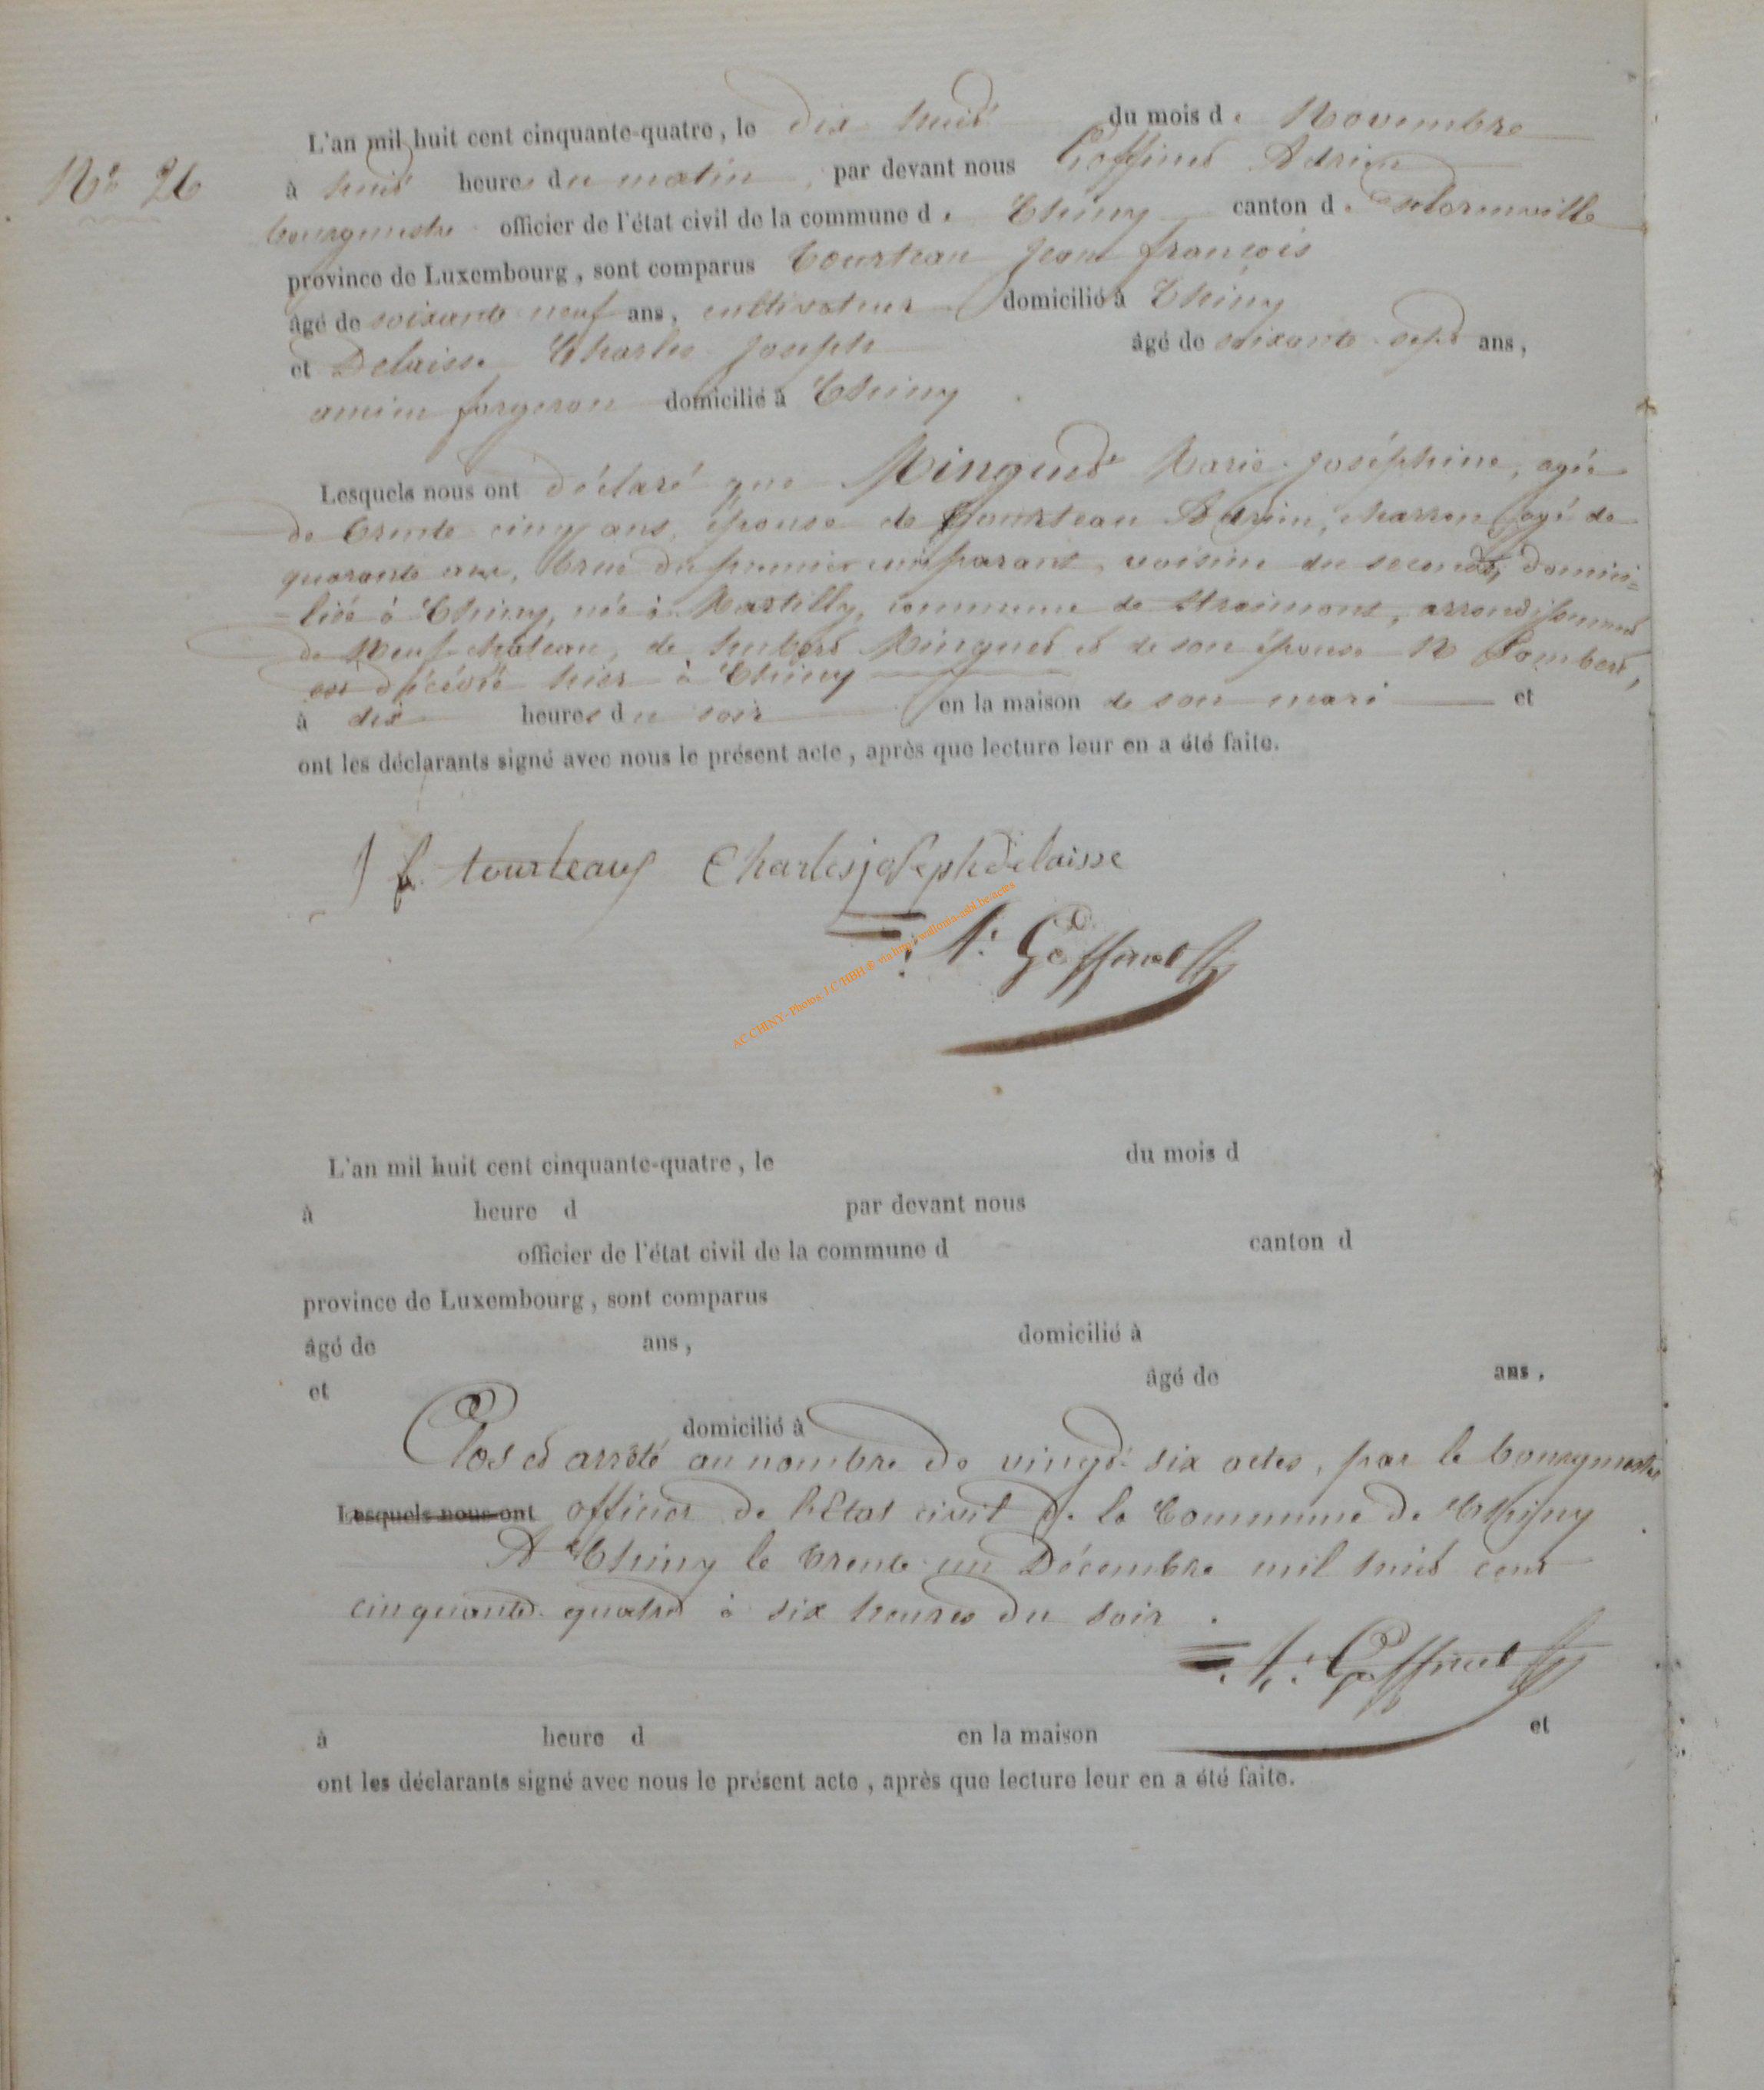 L'an mil huit cent cinquante-quatre, le dix huit du mois de Novembre
N° 26
à huit heures du matin, par devant nous Goffinet Adrien
bourgmestre officier de l'état civil de la commune de Chiny canton de florenville
province de Luxembourg, sont comparus Tourteau Jean françois
âgé de soixante neuf ans, cultivateur domicilié à Chiny
et Delaisse Charles Joseph âgé de soixante-sept ans,
ancien forgeron domicilié à Chiny
Lesquels nous ont déclaré que Minguet Marie Joséphine, agée
de trente cinq ans, épouse de Tourteau Adrien, charron, agé de
quarante ans, brue du premier comparant, voisine du second, domici=
-liée à Chiny, née à Martilly, commune de Straimont, arrondissement
de Neufchateau, de hubert Minguet et de son épouse N Lambert,
est décédée hier à Chiny
à dix heures du soir en la maison de son mari et
ont les déclarants signé avec nous le présent acte, après que lecture leur en a été faite.
J f. tourteaux Charles joseph delaisse
A. Goffinet
AC CHINY - Photos J.C HBR ©
L'an mil huit cent cinquante-quatre, le du mois d
à heure d par devant nous
officier de l'état civil de la commune d canton d
province de Luxembourg, sont comparus
âgé de ans, domicilié à
et âgé de ans,
domicilié à
Clos et arrêté au nombre de vingt-six actes, par le bourgmestre
Lesquels nous ont officier de l'Etat civil de la Commune de Chiny
A Chiny le trente un Décembre mil huit cent
cinquante-quatre à six heures du soir.
A. Goffinet
à heure d en la maison et
ont les déclarants signé avec nous le présent acte, après que lecture leur en a été faite.